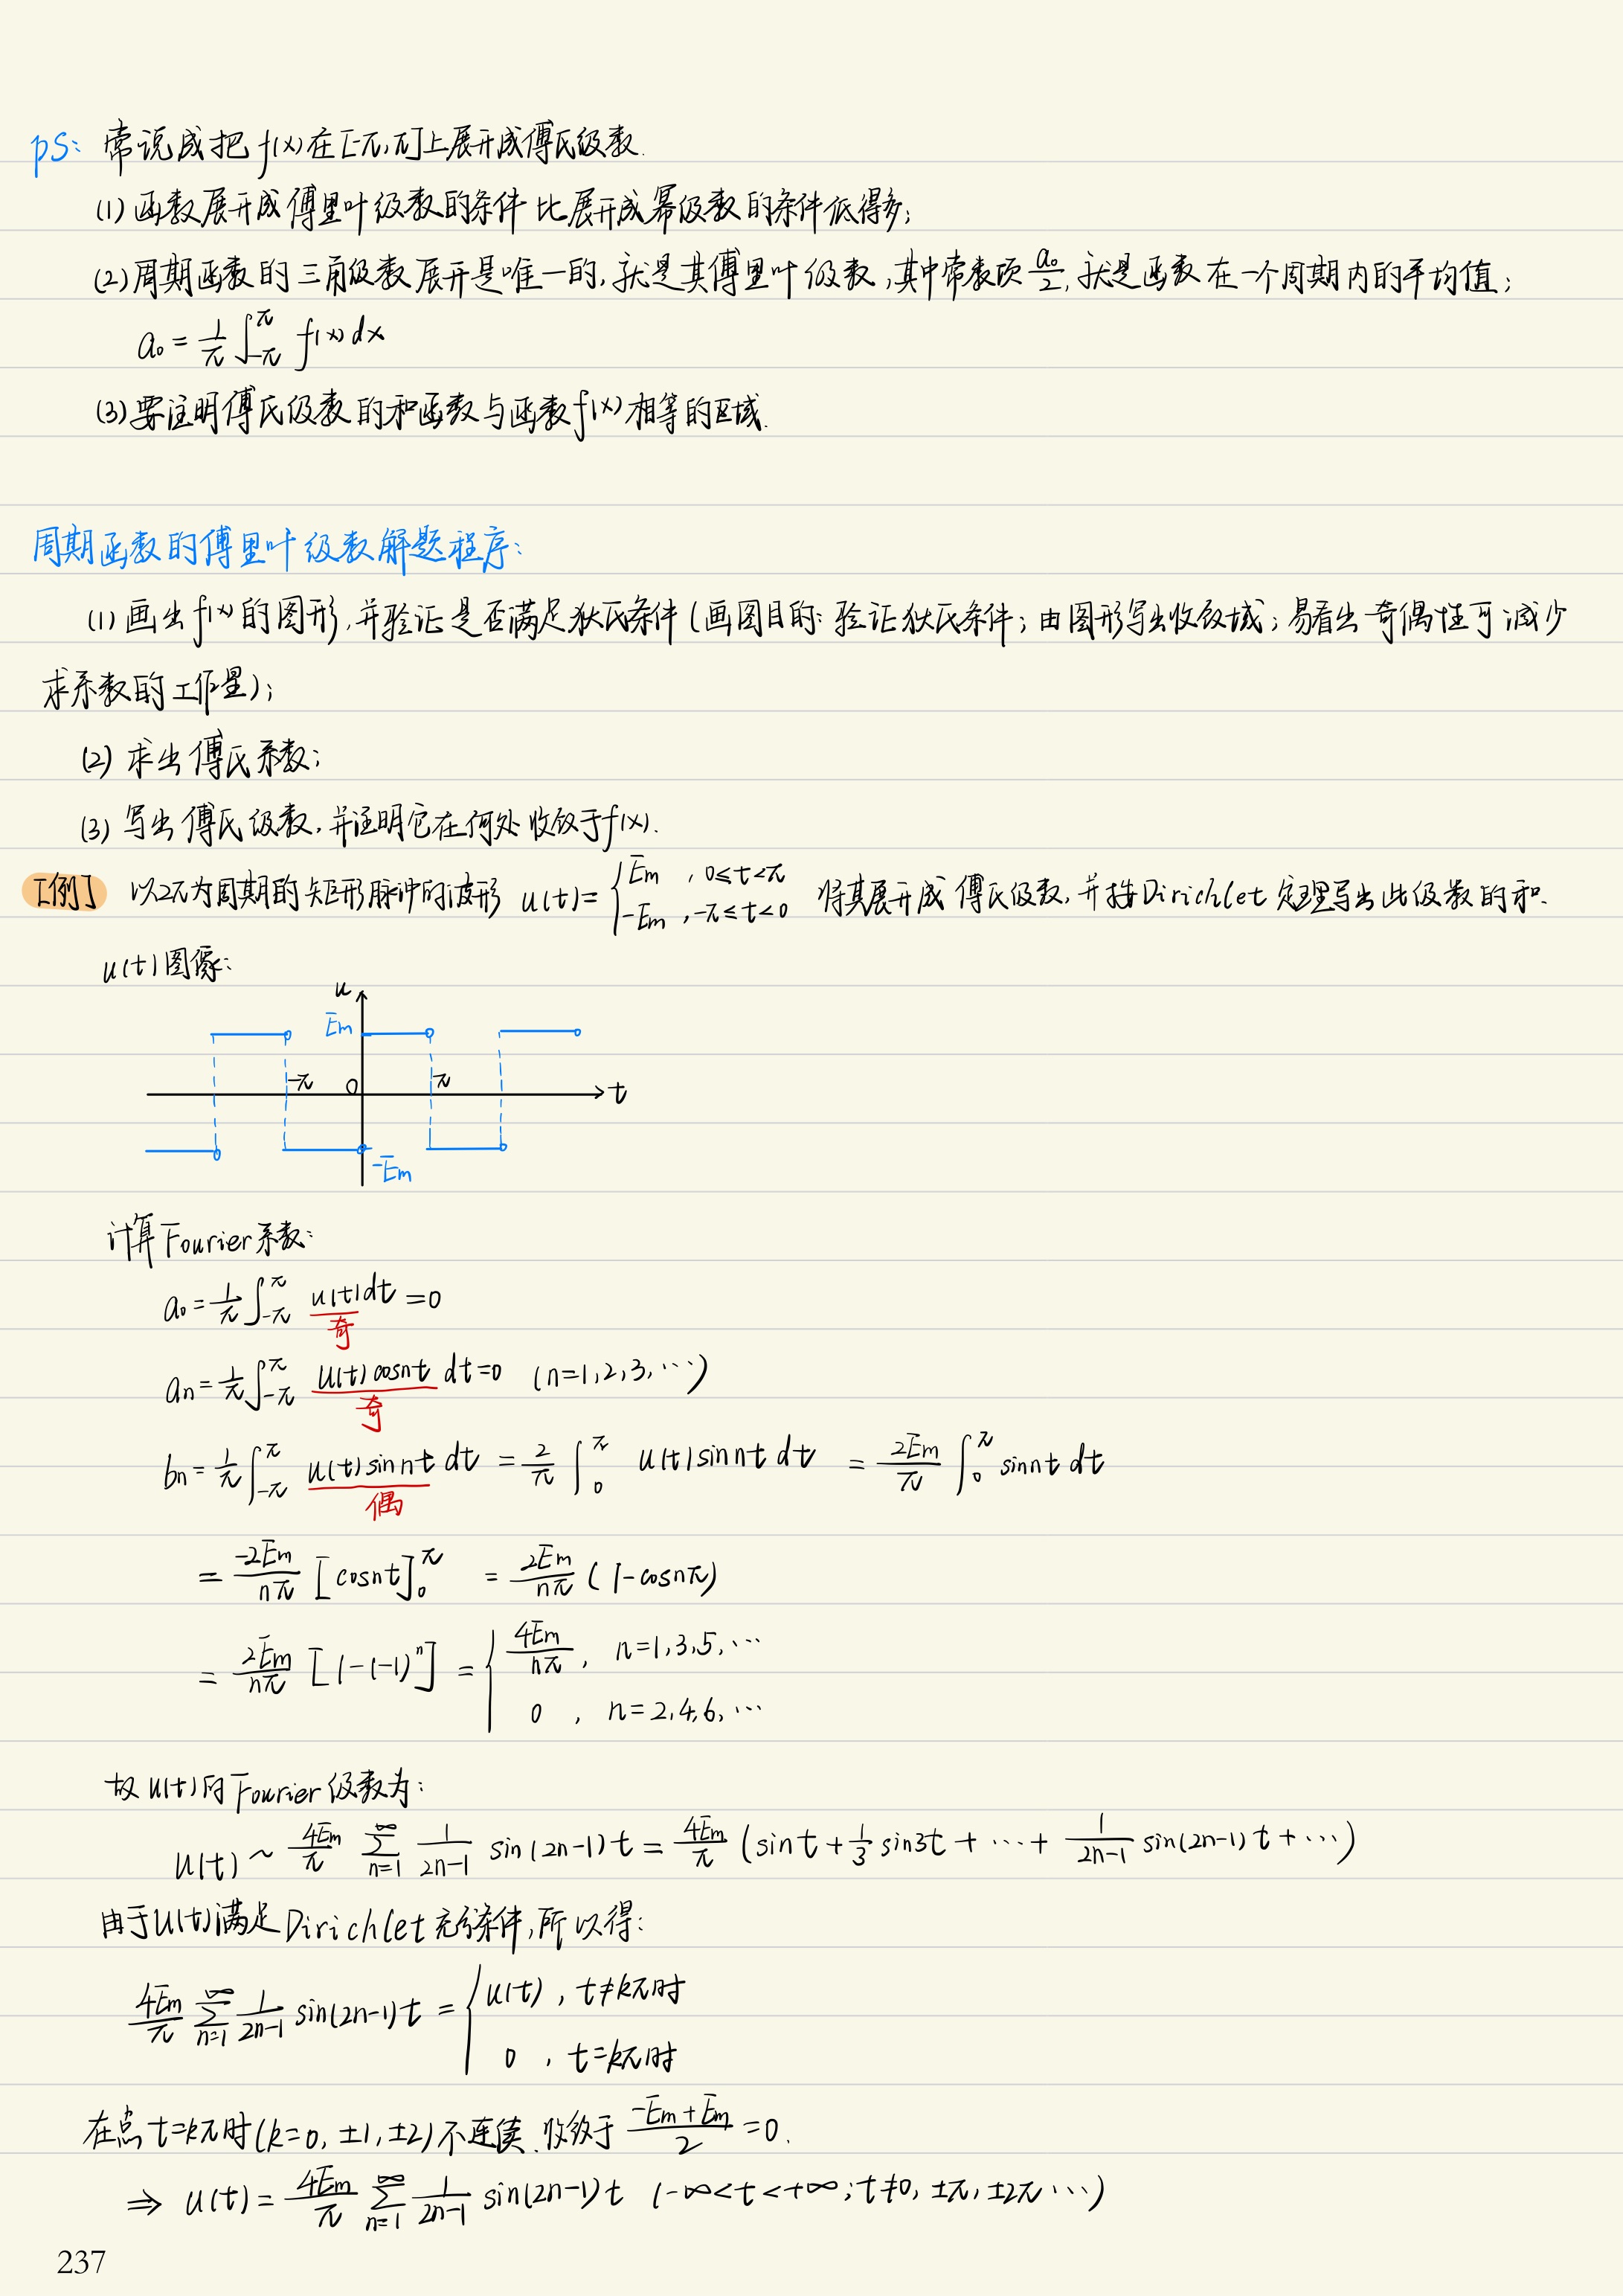 ps: 常说成把 f(x)在[-π,π]上展开成傅氏级数.
(1) 函数展开成傅里叶级数的条件比展开成幂级数的条件低得多;
(2) 周期函数的三角级数展开是唯一的,就是其傅里叶级数,其中常数项 a₀/2,就是函数在一个周期内的平均值;
a₀ = 1/π ∫_{-π}^{π} f(x)dx
(3) 要注明傅氏级数的和函数与函数f(x)相等的区域.
周期函数的傅里叶级数解题程序:
(1) 画出f(x)的图形,并验证是否满足狄氏条件(画图目的: 验证狄氏条件; 由图形写出收敛域; 易看出奇偶性可减少
求系数的工作量);
(2) 求出傅氏系数;
(3) 写出傅氏级数,并注明它在何处收敛于f(x).
[例] 以2π为周期的矩形脉冲的波形 u(t)= { Em , 0≤t<π ; -Em , -π≤t<0 将其展开成傅氏级数,并按Dirichlet定理写出此级数的和.
u(t)图像:
u
Em
-π 0 π t
-Em
计算Fourier系数:
a₀ = 1/π ∫_{-π}^{π} u(t)dt = 0
奇
an = 1/π ∫_{-π}^{π} u(t)cosnt dt = 0 (n=1,2,3,⋯)
奇
bn = 1/π ∫_{-π}^{π} u(t)sinnt dt = 2/π ∫_0^π u(t)sinnt dt = 2Em/π ∫_0^π sinnt dt
偶
= -2Em/nπ [cosnt]_0^π = 2Em/nπ (1-cosnπ)
= 2Em/nπ [1-(-1)ⁿ] = { 4Em/nπ , n=1,3,5,⋯
0 , n=2,4,6,⋯
故u(t)的Fourier级数为:
u(t) ~ 4Em/π ∑_{n=1}^{∞} 1/(2n-1) sin(2n-1)t = 4Em/π (sint + 1/3 sin3t + ⋯ + 1/(2n-1) sin(2n-1)t + ⋯)
由于u(t)满足Dirichlet充分条件,所以得:
4Em/π ∑_{n=1}^{∞} 1/(2n-1) sin(2n-1)t = { u(t) , t≠kπ时
0 , t=kπ时
在点t=kπ时(k=0, ±1, ±2)不连续.收敛于 (-Em+Em)/2 = 0.
⇒ u(t) = 4Em/π ∑_{n=1}^{∞} 1/(2n-1) sin(2n-1)t (-∞<t<+∞; t≠0, ±π, ±2π⋯)
237